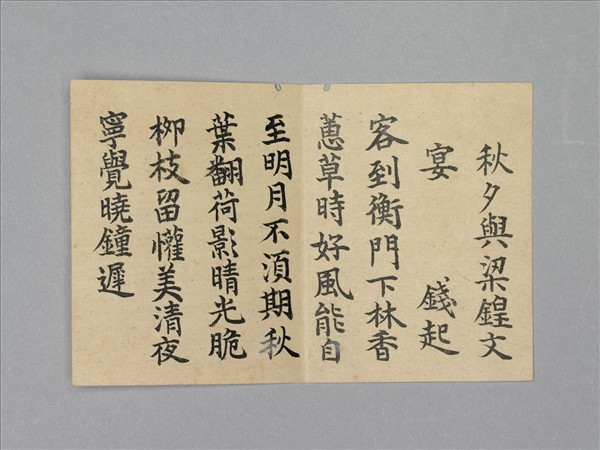 秋夕與梁鍠文
宴 錢起
客到衡門下林香
蕙草時好風能自
至明月不湏期秋
葉翻荷影晴光脆
柳枝留懽美清夜
寧覺曉鐘遲